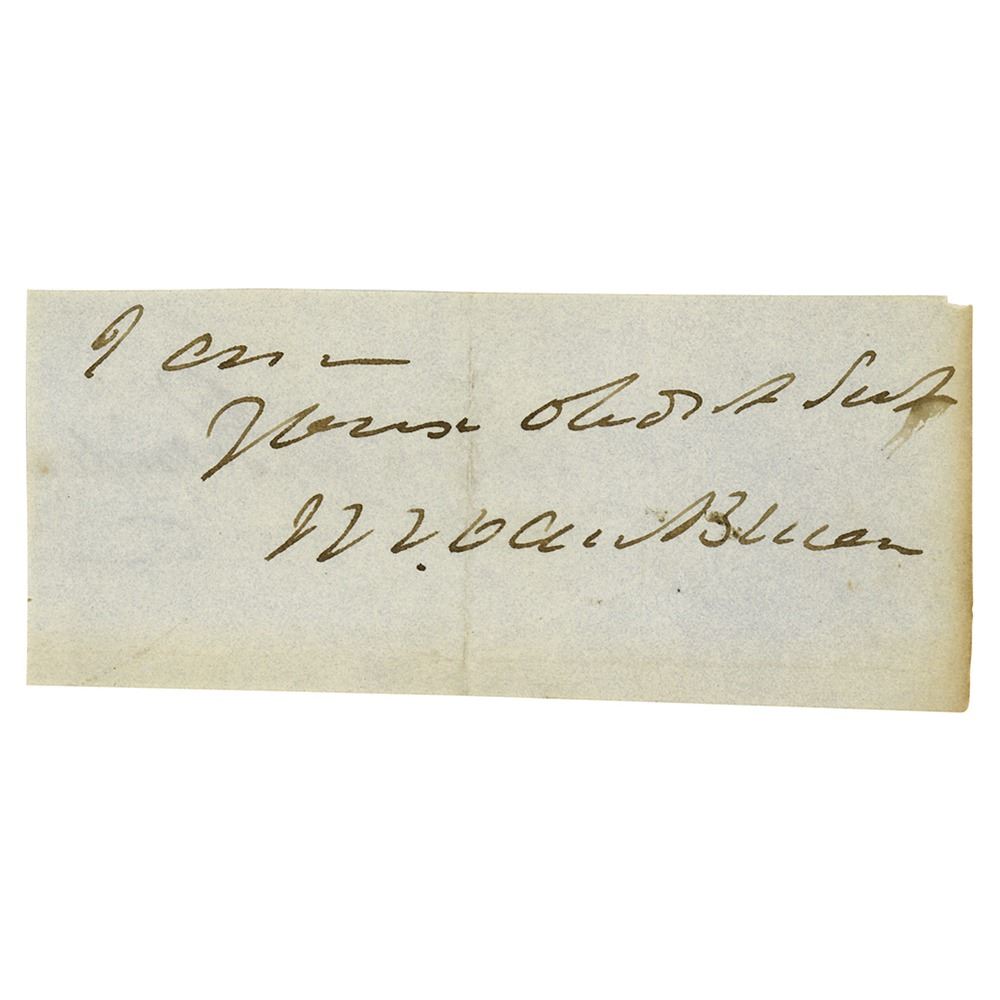 I am
Yours Obedt Svt
M. Van Buren